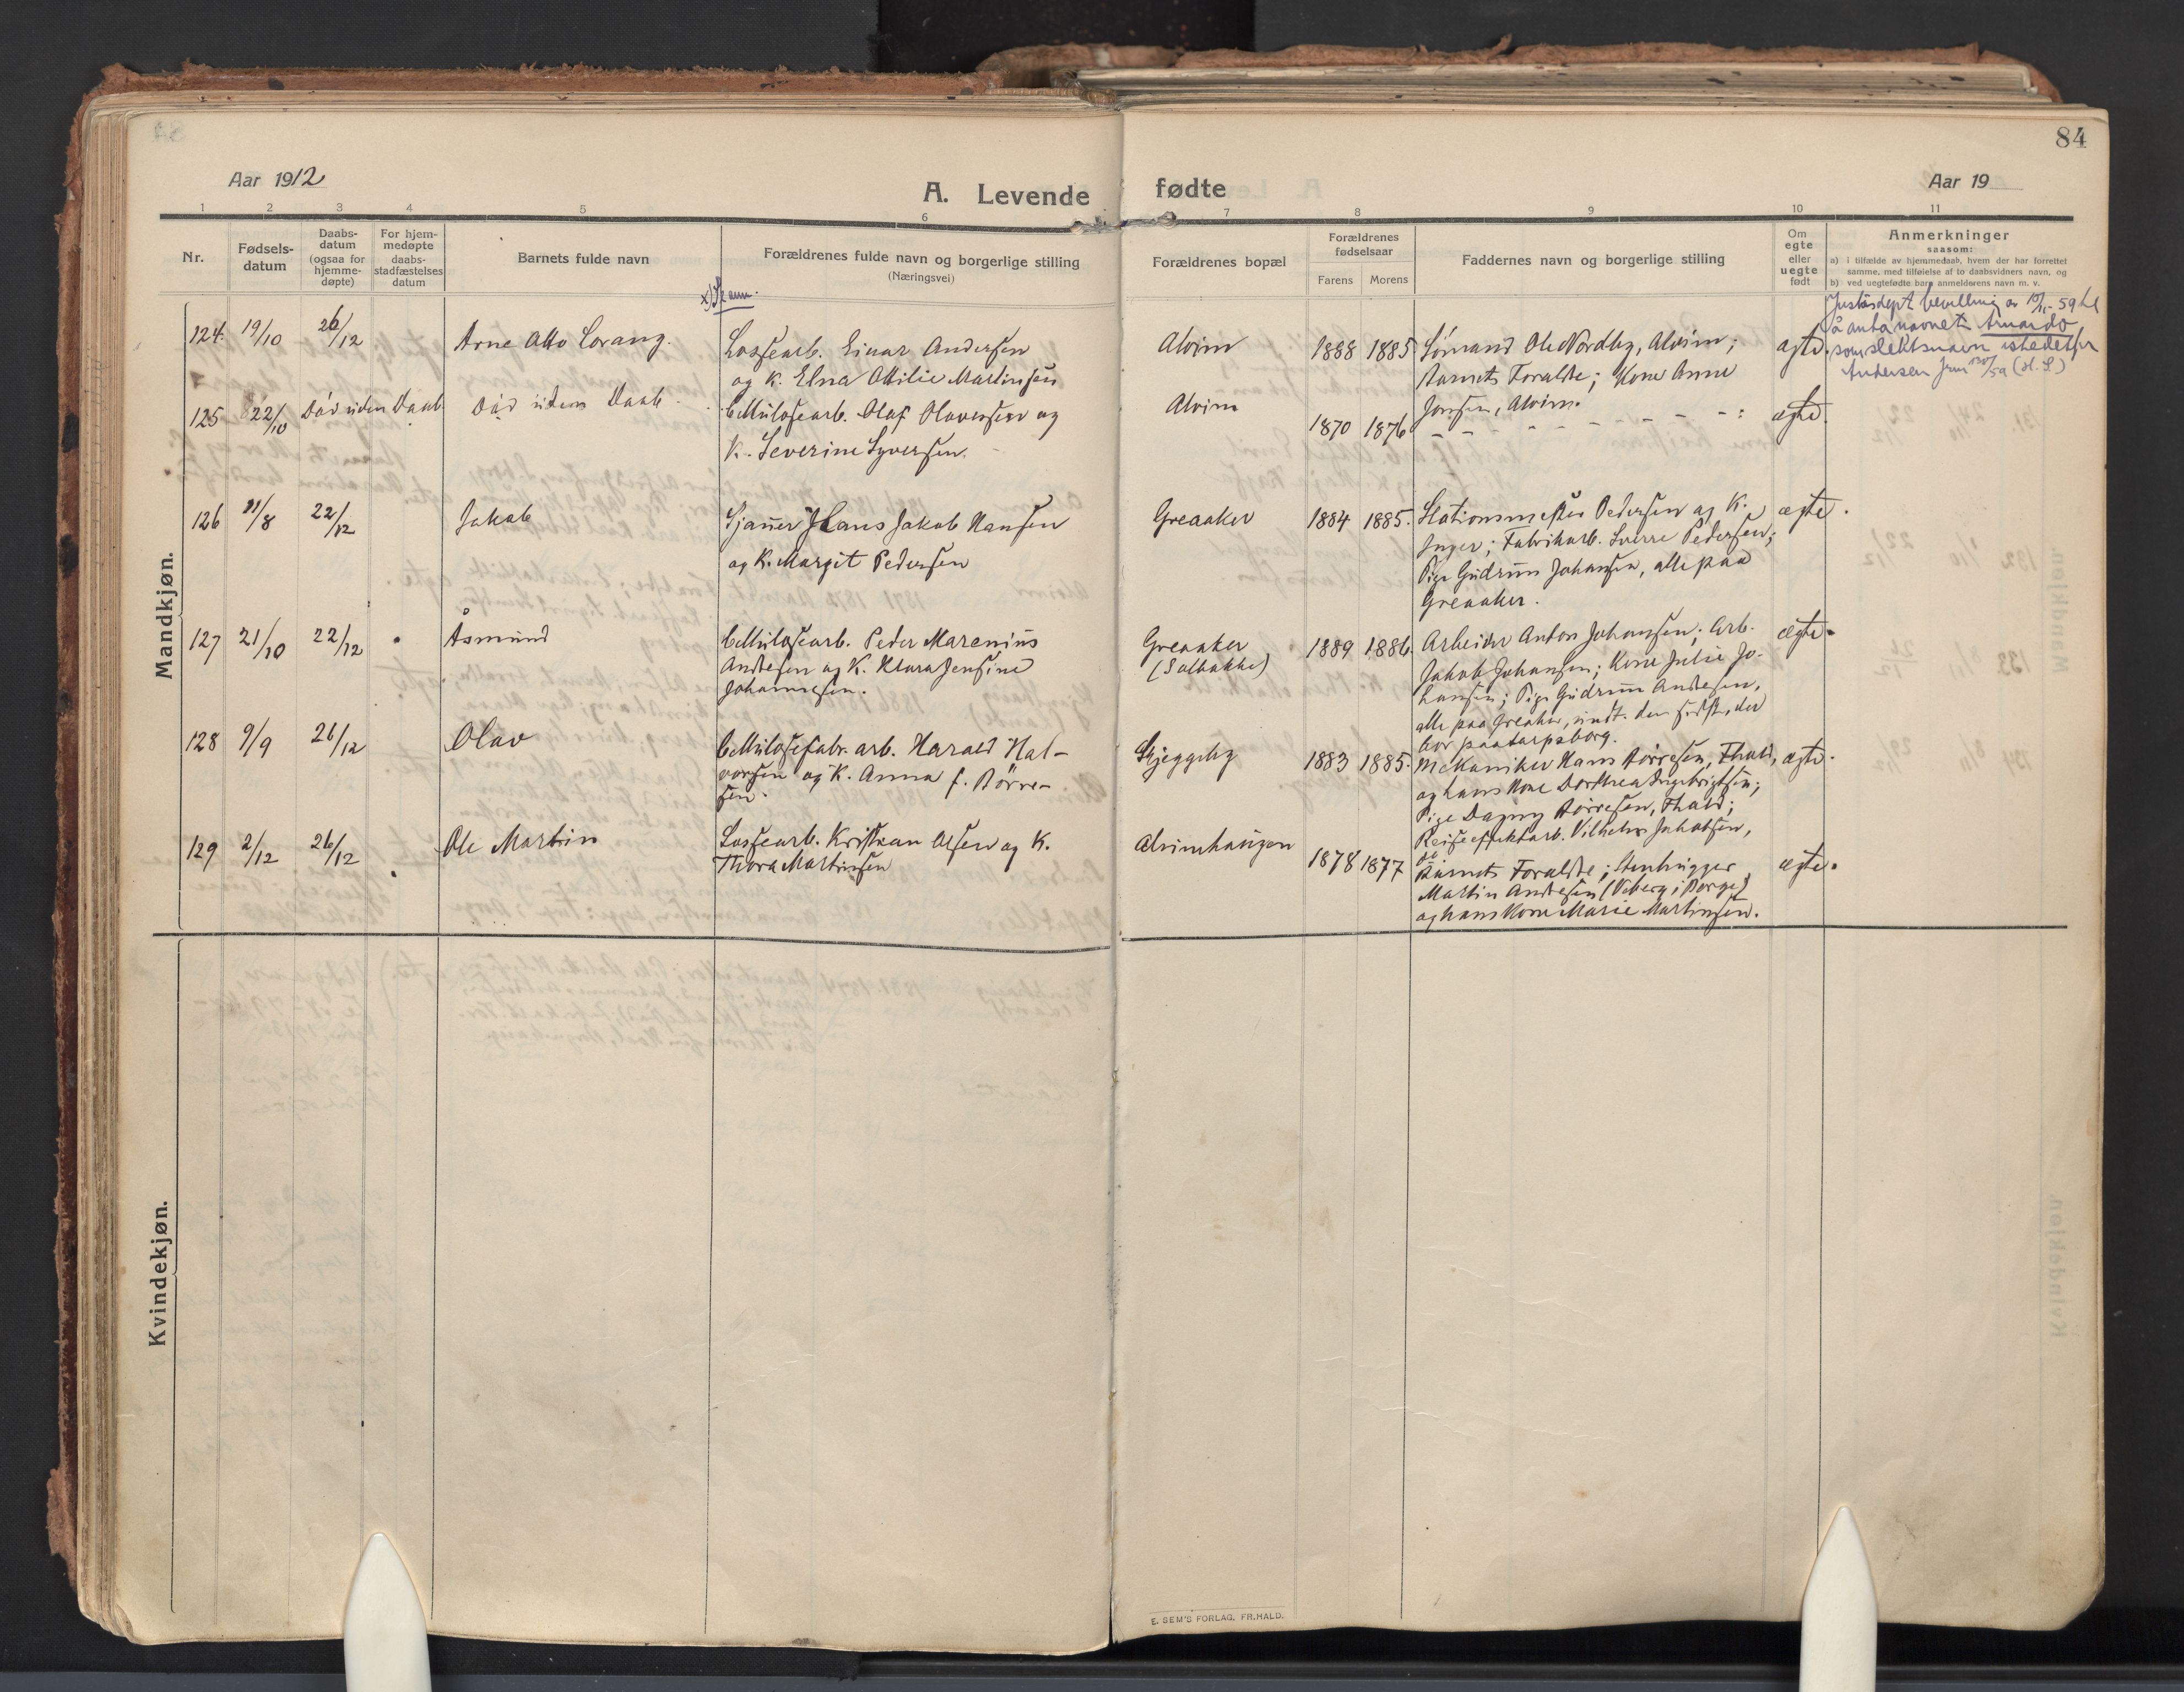 84
Aar 1912
A. Levende fødte
Aar 19
1 2 3 4 5 6 7 8 9 10 11
Nr.
Fødsels-
datum
Daabs-
datum
(ogsaa for
hjemme-
døpte)
For hjem-
medøpte
daabs-
stadfæstelses
datum
Barnets fulde navn
Forældrenes fulde navn og borgerlige stilling
(Næringsvei)
Forældrenes bopæl
Forældrenes
fødselsaar
Farens Morens
Faddernes navn og borgerlige stilling
Om
egte
eller
uegte
født
Anmerkninger
saasom:
a) i tilfælde av hjemmedaab, hvem der har forrettet
samme, med tilføielse af to daabsvidners navn, og
b) ved uegtefødte barn anmelderens navn m. v.
Mandkjøn.
x) anm.
124. 19/10 26/12 Arne Otto Lorang.
Lossearb. Einar Andersen
og K. Elna Otilie Martinsen
Alvim 1888 1885
Sømand Ole Nordby, Alvim;
Barnets Forældre; Kone Anne
Jonsen, Alvim.
ægte.
Justisdept bevilling av 59 til
å anta navnet Arnardo
som slektsnavn istedetfor
Andersen 59 (H. S.)
125 22/10 Død uden Daab. Død uden Daab.
Cellulosearb. Olaf Olavessen og
K. Severine Syversen.
Alvim 1870 1876 - - - - - - - - : ægte.
126 11/8 22/12 Jakob
Sjauer Hans Jakob Hansen
og K. Margit Pedersen
Greaaker 1884 1885.
Stationsmester Pedersen og K.
Inger; Fabrikarb. Sverre Pedersen;
Pige Gudrun Johansen, alle paa
Greaaker.
ægte.
127 21/10 22/12 Åsmund
Cellulosearb. Peder Marenius
Andresen og K. Klara Jensine
Johannesen.
Greaaker
(Solbakke)
1889 1886
Arbeider Anton Johansen; Arb.
Jakob Johansen; Kone Julie Jo-
hansen; Pige Gudrun Andresen,
alle paa Greaker, undt. den sidste, der
bor paa Sarpsborg.
ægte.
128 9/9 26/12 Olav
Cellulosefabr. arb. Harald Hal-
vorsen og K. Anna f. Børre-
sen.
Skjeggeby 1883 1885.
Mekaniker Hans Børresen, Fhald,
og hans Kone Dorthea Ingebrigtsen;
Pige Dagny Børresen, Fhald;
Reiseeffektarb. Vilhelm Jakobsen,
ægte.
129 2/12 26/12 Ole Martin
Lossearb. Kristian Olsen og K.
Thora Martinsen
Alvimhaugen 1878 1877
Barnets Forældre; Stenhugger
Martin Andresen (Viberg i Borge)
og hans Kone Marie Martinsen.
ægte.
Kvindekjøn.
E. SEM'S FORLAG, FR.HALD.